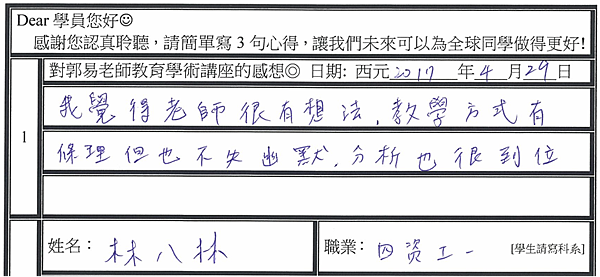 Dear 學員您好☺
感謝您認真聆聽，請簡單寫 3 句心得，讓我們未來可以為全球同學做得更好!
對郭易老師教育學術講座的感想◎ 日期: 西元2017 年4 月29日
1
我覺得老師很有想法,教學方式有
條理但也不失幽默,分析也很到位
姓名： 林八林
職業： 四資工一 [學生請寫科系]